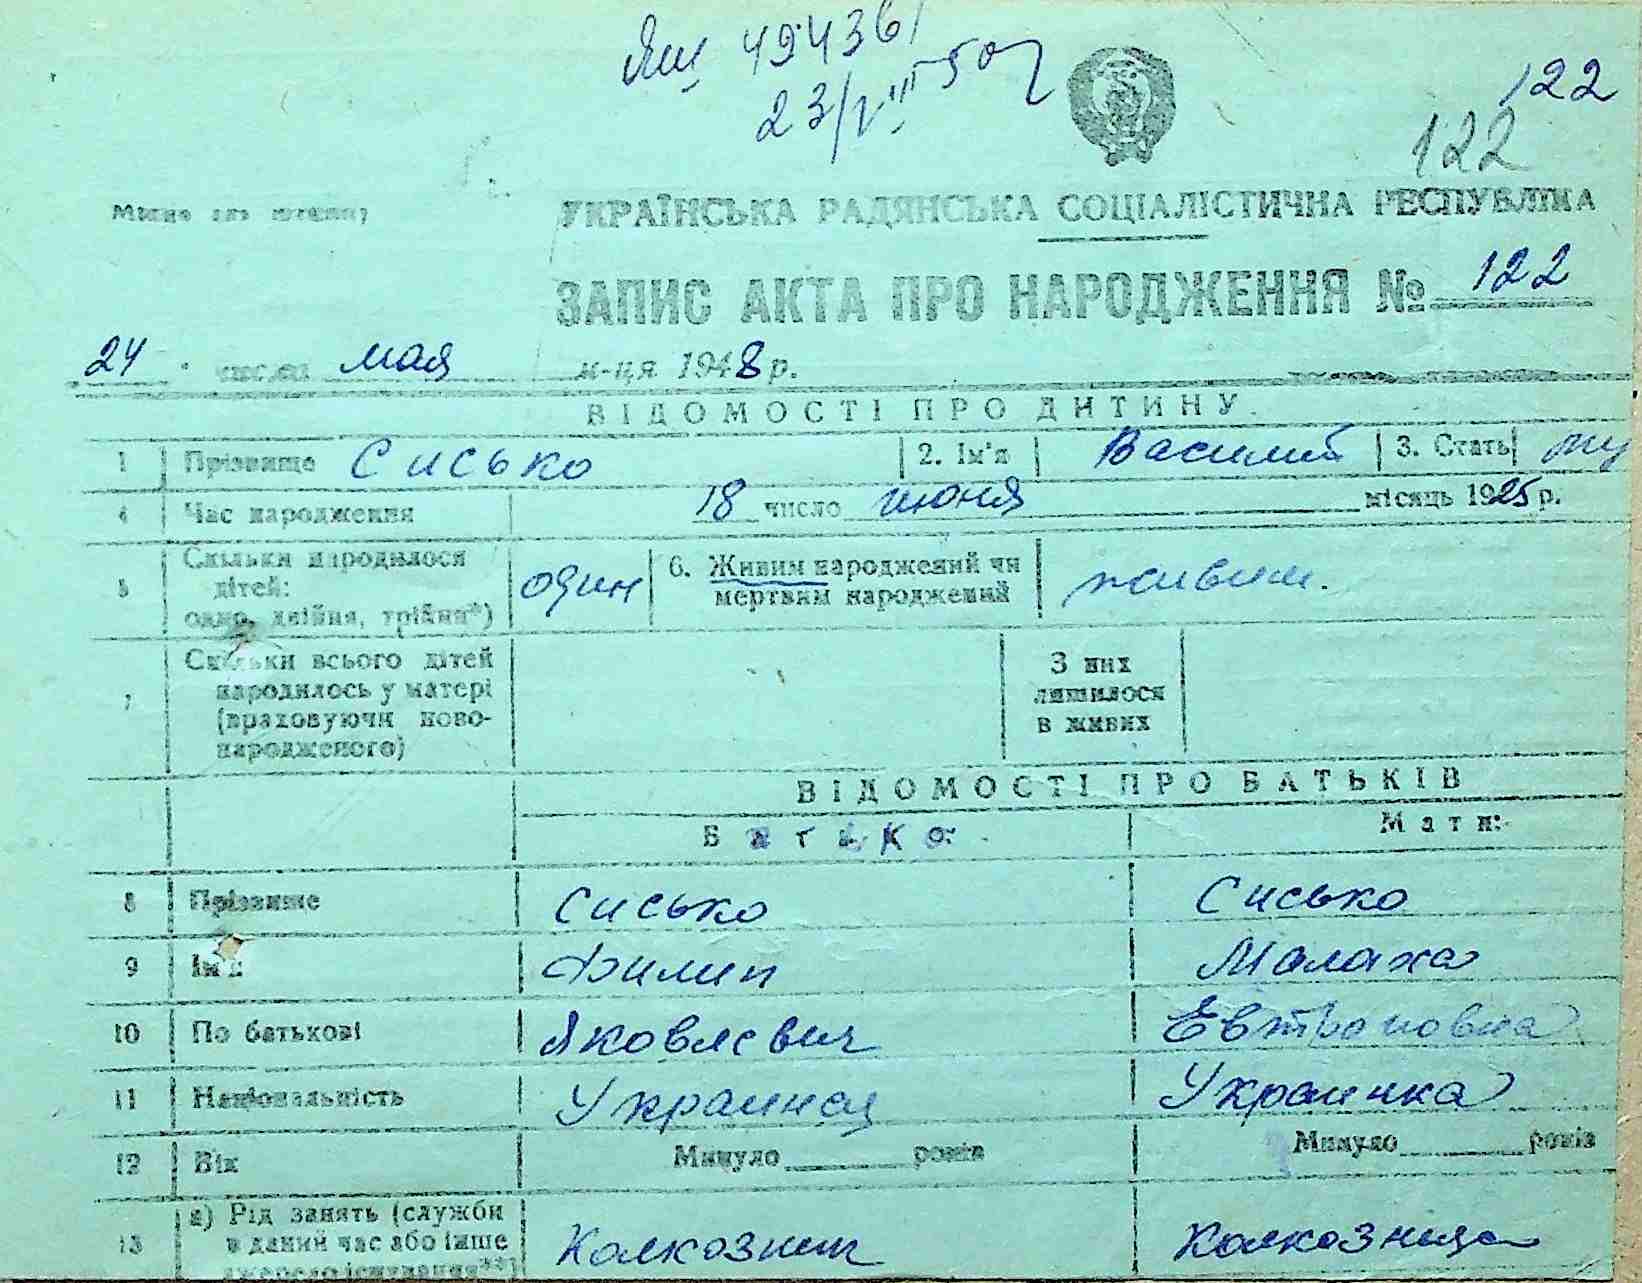 ЯШ 494361
23/VIII 50г
122
122
Місце для штампу
УКРАЇНСЬКА РАДЯНСЬКА СОЦІАЛІСТИЧНА РЕСПУБЛІКА
ЗАПИС АКТА ПРО НАРОДЖЕННЯ № 122
24 числа мая м-ця 1948 р.
ВІДОМОСТІ ПРО ДИТИНУ
1 Прізвище Сисько 2. Ім'я Василий 3. Стать му
4 Час народження 18 число июня місяць 1925 р.
5 Скільки народилося дітей: одно, двійня, трійня*) один 6. Живим народжений чи мертвим народжений живым.
7 Скільки всього дітей народилось у матері (враховуючи новонародженого) З них лишилося в живих
ВІДОМОСТІ ПРО БАТЬКІВ
Батько: Мати:
8 Прізвище Сисько Сисько
9 Ім'я Филип Малаха
10 По батькові Яковлевич
11 Національність Украинец Украинка
12 Вік Минуло років Минуло років
13 а) Рід занять (служби в даний час або інше джерело існування**) Колхозник Колхозница